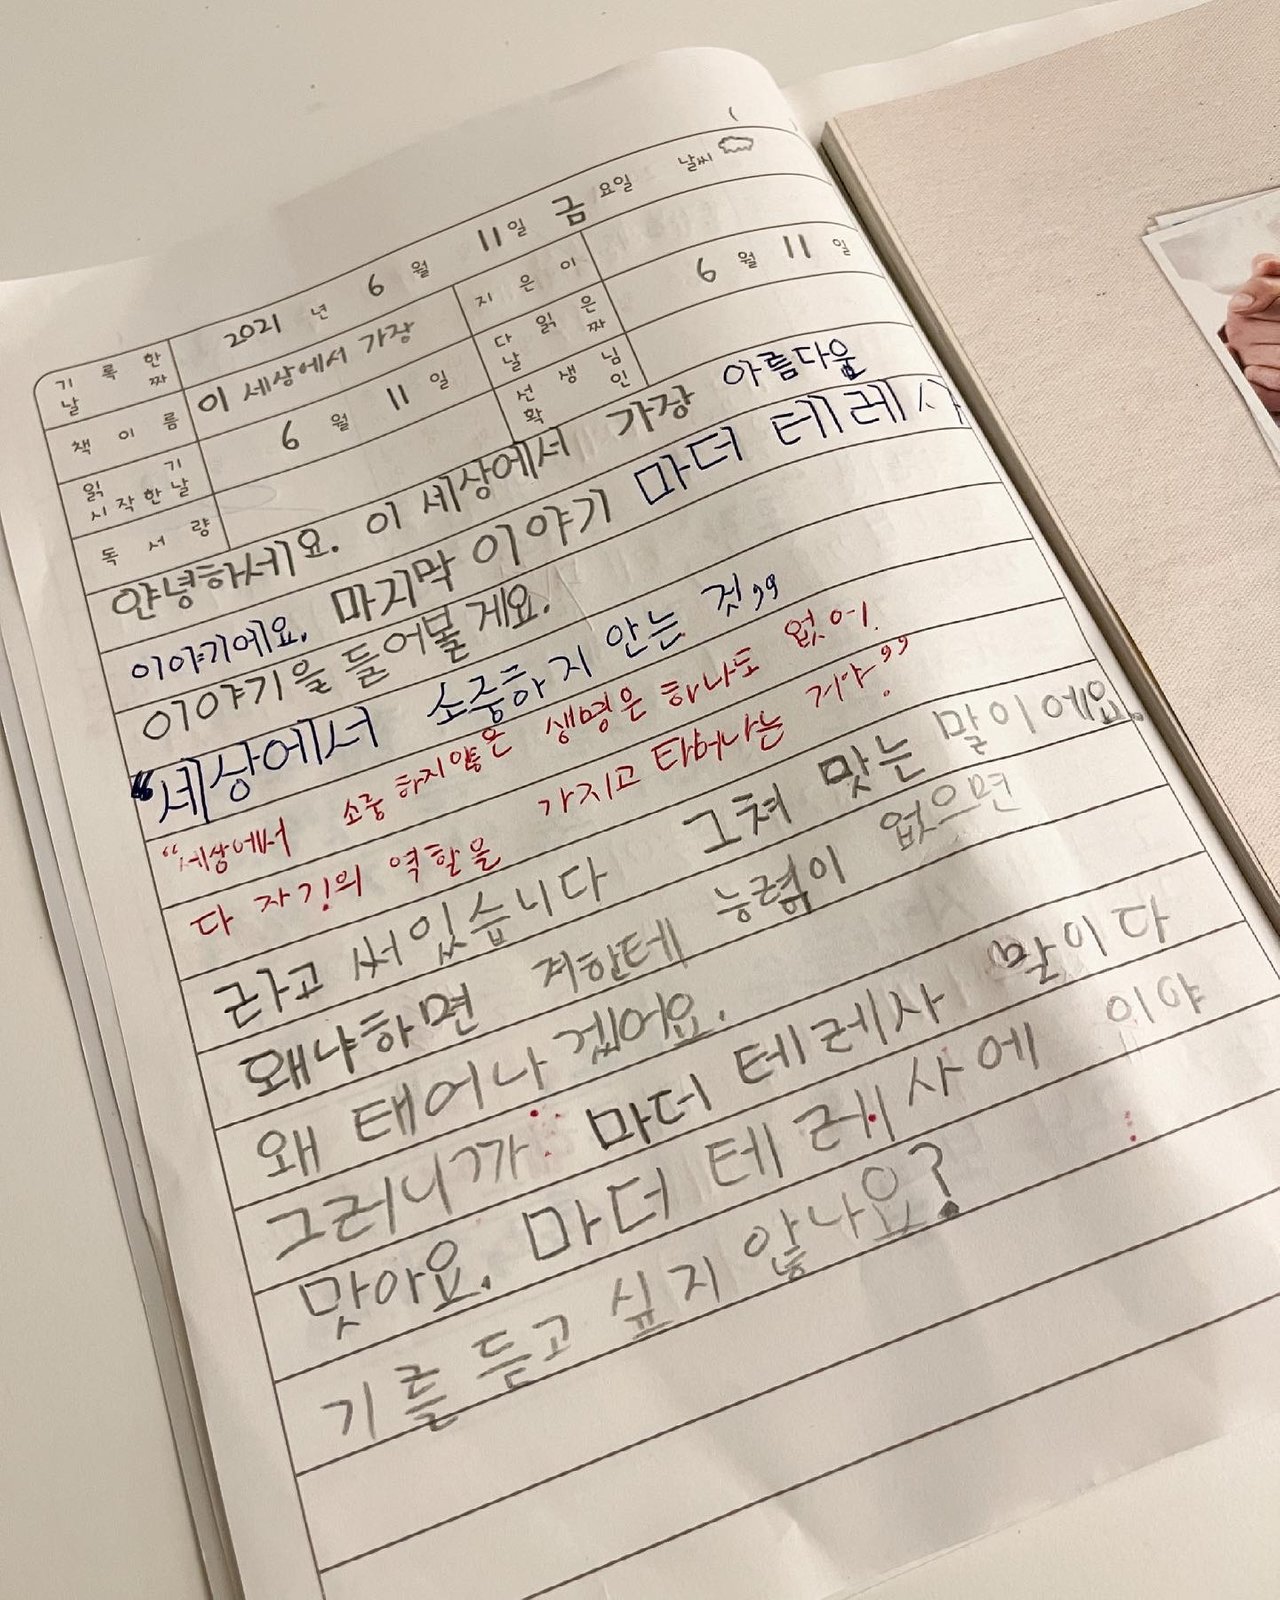 기록한 날짜 2021년 6월 11일 금요일 날씨
책이름 이 세상에서 가장 지은이
읽기 시작한 날 6월 11일 다 읽은 날짜 6월 11일
독서량 선생님 확인
안녕하세요. 이 세상에서 가장 아름다울
이야기에요. 마지막 이야기 마더 테레사
이야기을 들어볼게요.
"세상에서 소중하지 안는 것"
"세상에서 소중하지않은 생명은 하나도 없어.
다 자기의 역할을 가지고 태어나는 거야."
라고 써있습니다 그쳐 맞는 말이에요.
왜냐하면 저한테 능력이 없으면
왜 태어나 겠어요.
그러니까 마더 테레사 말이다
맞아요. 마더 테레사에 이야
기를 듣고 싶지 않나요?